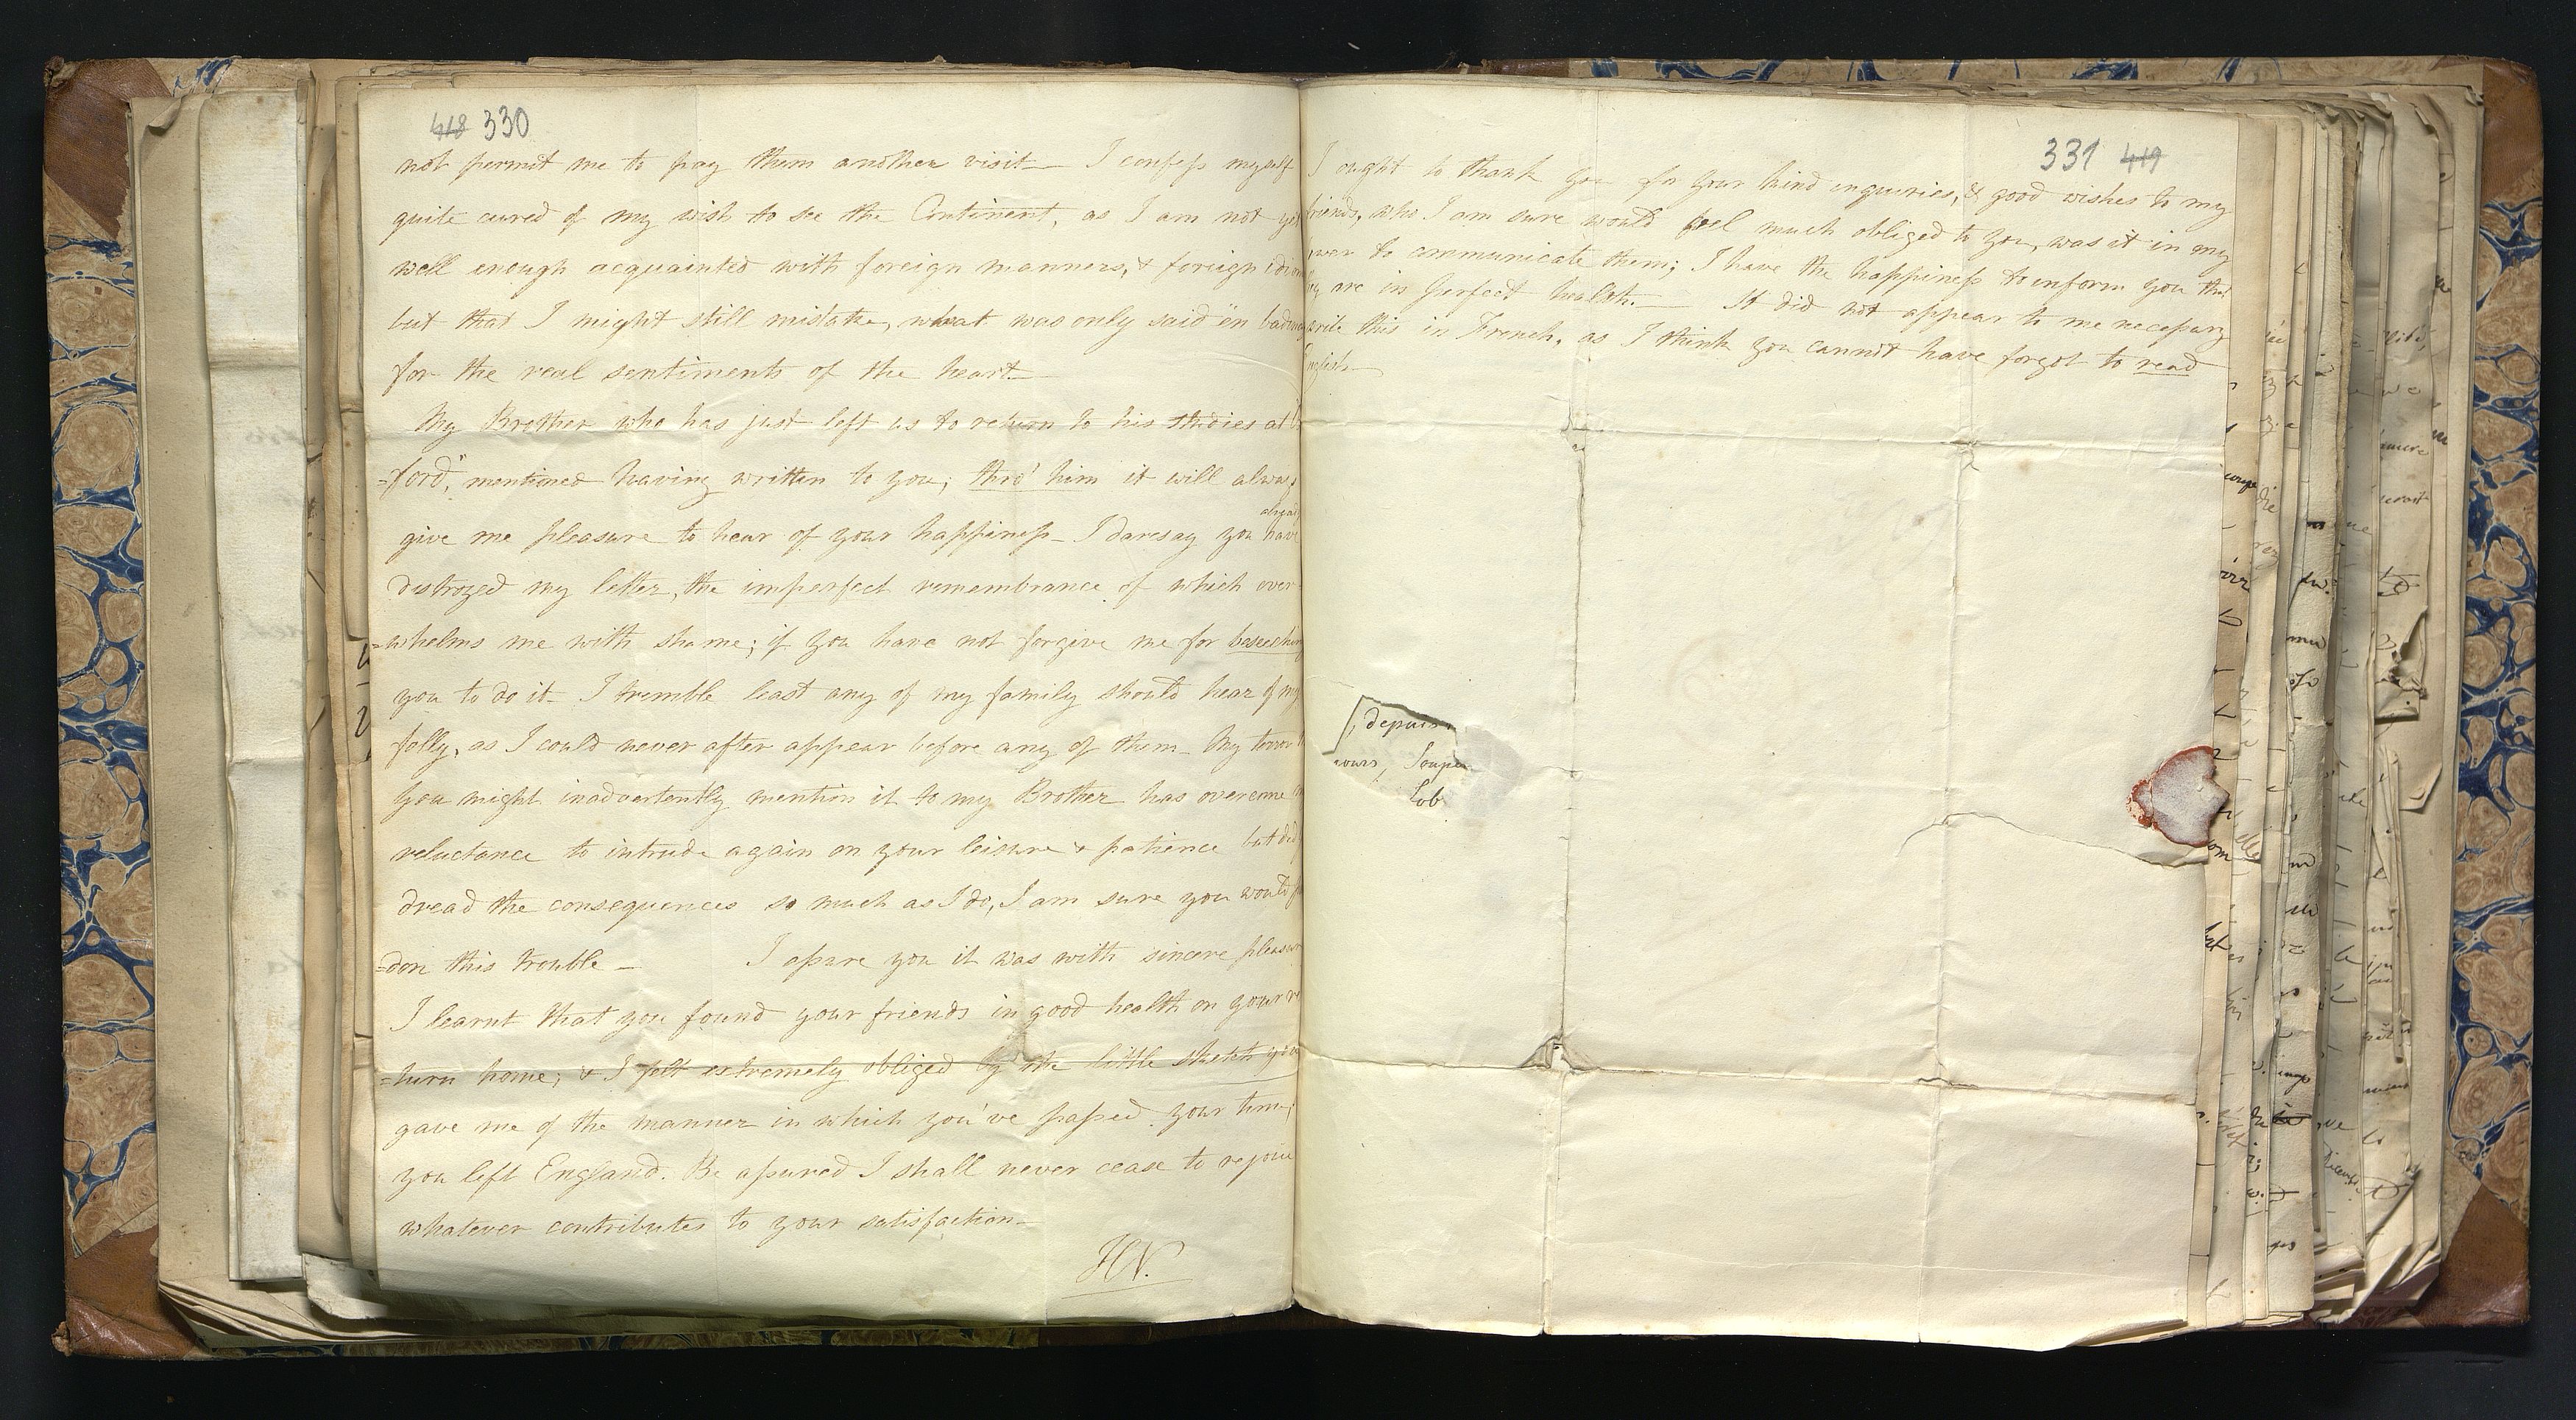 418 330
not permit me to pay them another visit— I confess myself
quite cured of my wish to see the Continent, as I am not
well enough acquainted with foreign manners, & foreign
but that I might still mistake, what was only said "en
for the real sentiments of the heart—
My Brother who has just left us to return to his studies at
=ford," mentioned having written to you; thro' him it will always
give me pleasure to hear of your happiness— I daresay you have
destroyed my letter, the imperfect remembrance of which over
=whelms me with shame; if you have not forgive me for beseeching
you to do it— I tremble least any of my family should hear of my
folly, as I could never after appear before any of them— My terror
you might inadvertently mention it to my Brother has overcome
reluctance to intrude again on your leisure & patience but did
dread the consequences so much as I do, I am sure you would
=don this trouble— I assure you it was with sincere
I learnt that you found your friends in good health on your re
=turn home; & I felt extremely obliged by the little sketch you
gave me of the manner in which you've passed your time,
you left England. Be assured I shall never cease to rejoice
whatever contributes to your satisfaction—
HN.
331 419
I ought to thank you for your kind enquiries, & good wishes to my
friends, who I am sure would feel much obliged to you, was it in my
to communicate them; I have the happiness to inform you that
are in perfect health.— It did not appear to me necessary
write this in French, as I think you cannot have forgot to read
English—
depuis